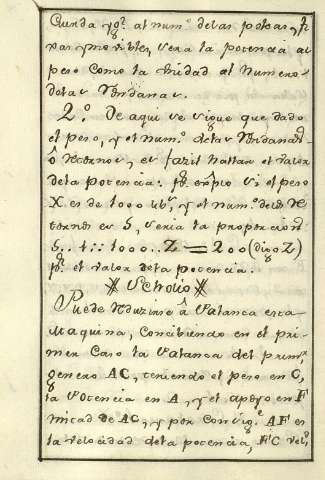 Cunda yg.l al num.o delas poleas fi
xas y movibles, sera la potencia al
peso como la Unidad al numero
delas Vbrdanas.
2.o De aqui se sigue que dado
el peso, y el num.o delas
ô retornos, es facil hallar el valor
dela potencia: si el peso
X es de 1000 y el num.o delos Re
tornos es 5, seria la proporcion
5..1::1000..Z=200 (digo Z)
p.r el valor dela potencia.
Scholio
Puede reduzirse â Valanca esta
Maquina, concibiendo en el pri
mer caso la Valanca del prim.r
genero AC, teniendo el peso en C,
la Potencia en A, y el apoyo en F
mitad de AC, y por AF es
la velocidad dela potencia, FC vel.d